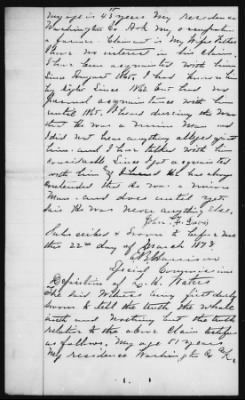 my age is 43 years My residence
Washington Co Ark My occupation
a farmer. Claimant is My Step father
I have no interest in his Claim.
I have been acquainted with him
Since August 1865, I had known him
by sight Since 1862 but had no
personal acquaintance with him
until 1865. I heard during the War
that he was a union Man and
I did not hear anything alleged against
him. and I have talked with him
considerable Since I got acquainted
with him & he has always
contended that he was a union
Man. and does until yet.
said He was never anything else.
Subscribed & Sworn to before me
this 22nd day of March 1873
Special Commissioner
Deposition of L. H. Waters
The said Witness being first duly
Sworn to tell the truth the whole
truth and Nothing but the truth
relative to the above Claim testifies
as follows. My age 51 years
My residence Washington Co Ark